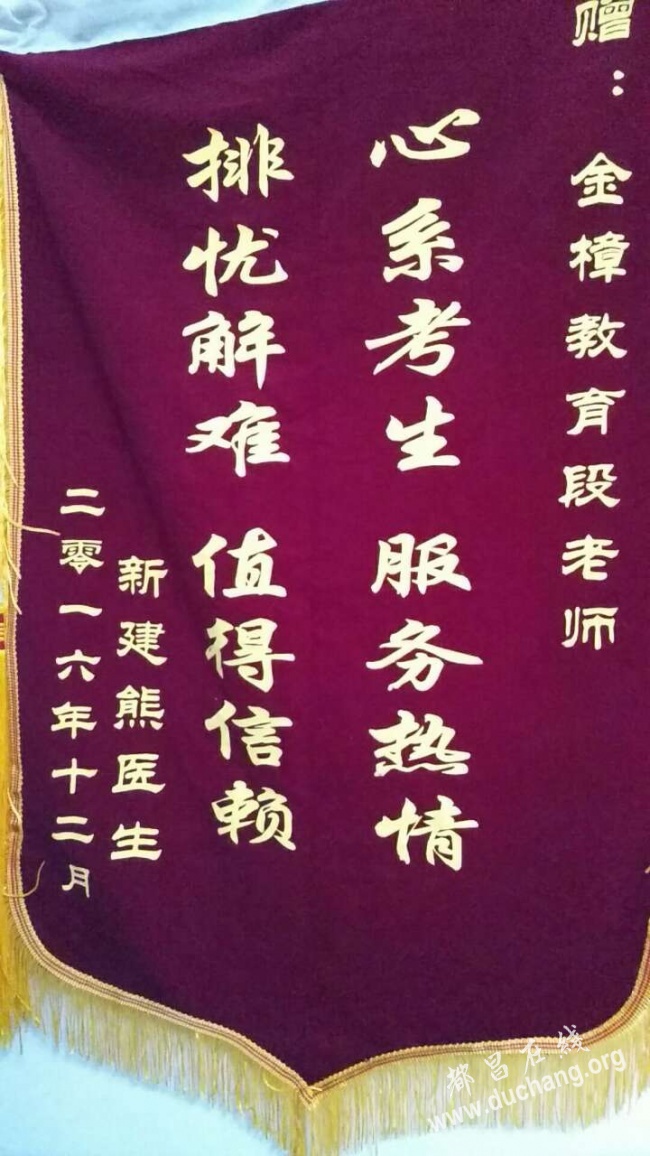 赠：金樟教育段老师
心系考生 服务热情
排忧解难 值得信赖
新建熊医生
二零一六年十二月
都昌在线
www.duchang.org